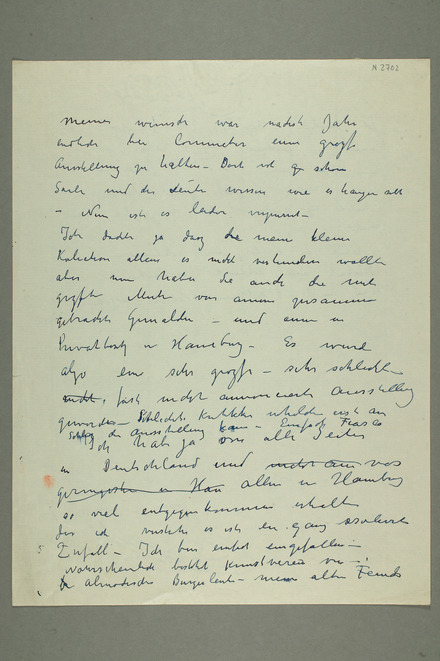 N 2702
meines wunsch war nächste Jahr
endlich bei Commeter eine große
Ausstellung zu halten – Dort ist ja schon
Saale und die Leute wissen wie es hängen soll
– Nun ist es leider
Ich dachte ja dass die meine kleine
Kolection allein es nicht verhindern wollte
aber nun haben Sie auch die mit
große Mühe von zusammen
gebracht Gemälde – und in
Privatbesitz in Hamburg – Es wird
also ein sehr große – sehr schlecht
nicht, fast nicht annoncierte Ausstellung
geworden – Schlecht Kritiken erst am
der Ausstellung – Einfach Fiasco
Ich hab ja von alle Seiten
in Deutschland und nicht am von
geringsten in Ham allen in Hamburg
so viel entgegenkommen erhalten
das ich verstehe es ist ein ganz absolute
Zufall – Ich bin einfach eingefallen –
Wahrscheinlich besteht Kunstverein von
altmodische Burgerleute – meine alten Feinds